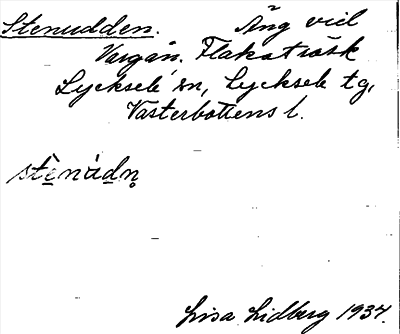 Stenudden. Äng vid
Vargån. Flakaträsk
Lycksele sn, Lycksele tg,
Västerbottens l.
stènúdn̥
Lisa Lidberg 1934.